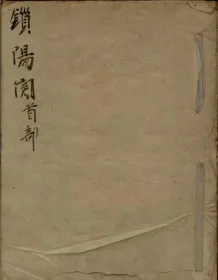 鎖陽囪首部